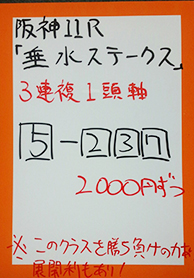 阪神11R
「垂水ステークス」
3連複1頭軸
5-237
2000円ずつ
※このクラスを勝ち負けの力あり
展開利もあり！